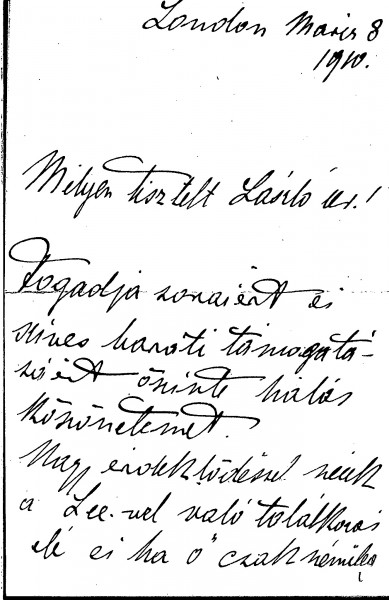 London Márcz 8
1910.
Mélyen tisztelt László úr!
Fogadja soraiért és
szives baráti támogatá-
sáért őszinte hálás
köszönetemet.
Nagy érdeklődéssel nézek
a Lee-vel való találkozás
elé és ha ő csak némileg